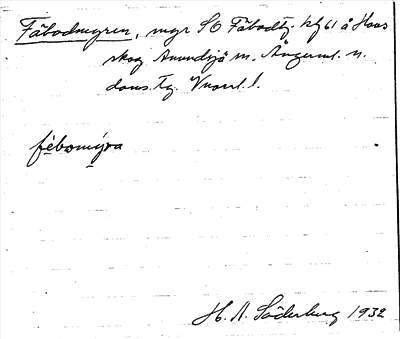 Fäbodmyren, myr SO Fäbodtj. kfg 61 å Haas
skog Anundsjö sn. Ångerml. n.
doms. Tg. Vnorrl. l.
fèbomýra
H. A. Söderberg 1932